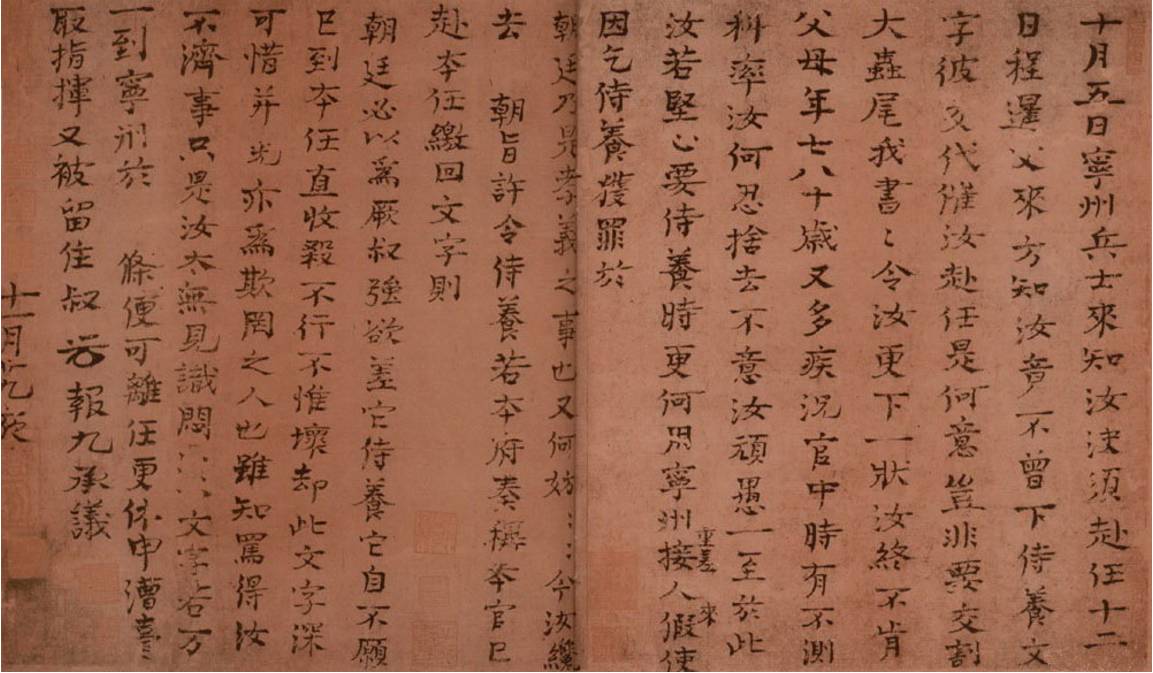 十月五日寧州兵士來知汝決須赴任十二
日程暹父來方知汝竟不曾下侍養文
字彼交代催汝赴任是何意豈非要交割
大蟲尾我書〻令汝更下一狀汝終不肯
父母年七八十歲又多疾況官中時有不測
科率汝何忍捨去不意汝頑愚一至於此
重差 來
汝若堅心要侍養時更何用寧州接人假使
因乞侍養獲罪於
朝廷乃是孝義之事也又何妨〻〻今汝纔
去 朝旨許令侍養若本府奏稱本官已
赴本任繳回文字則
朝廷必以為厥叔強欲差它侍養它自不願
已到本任直收殺不行不惟壞却此文字深
可惜并光亦為欺罔之人也雖知罵得汝
不濟事只是汝太無見識悶〻〻文字若万
一到寧州於 條便可離任更依申漕臺
取指揮又被留住叔 光 報九承議
十一月